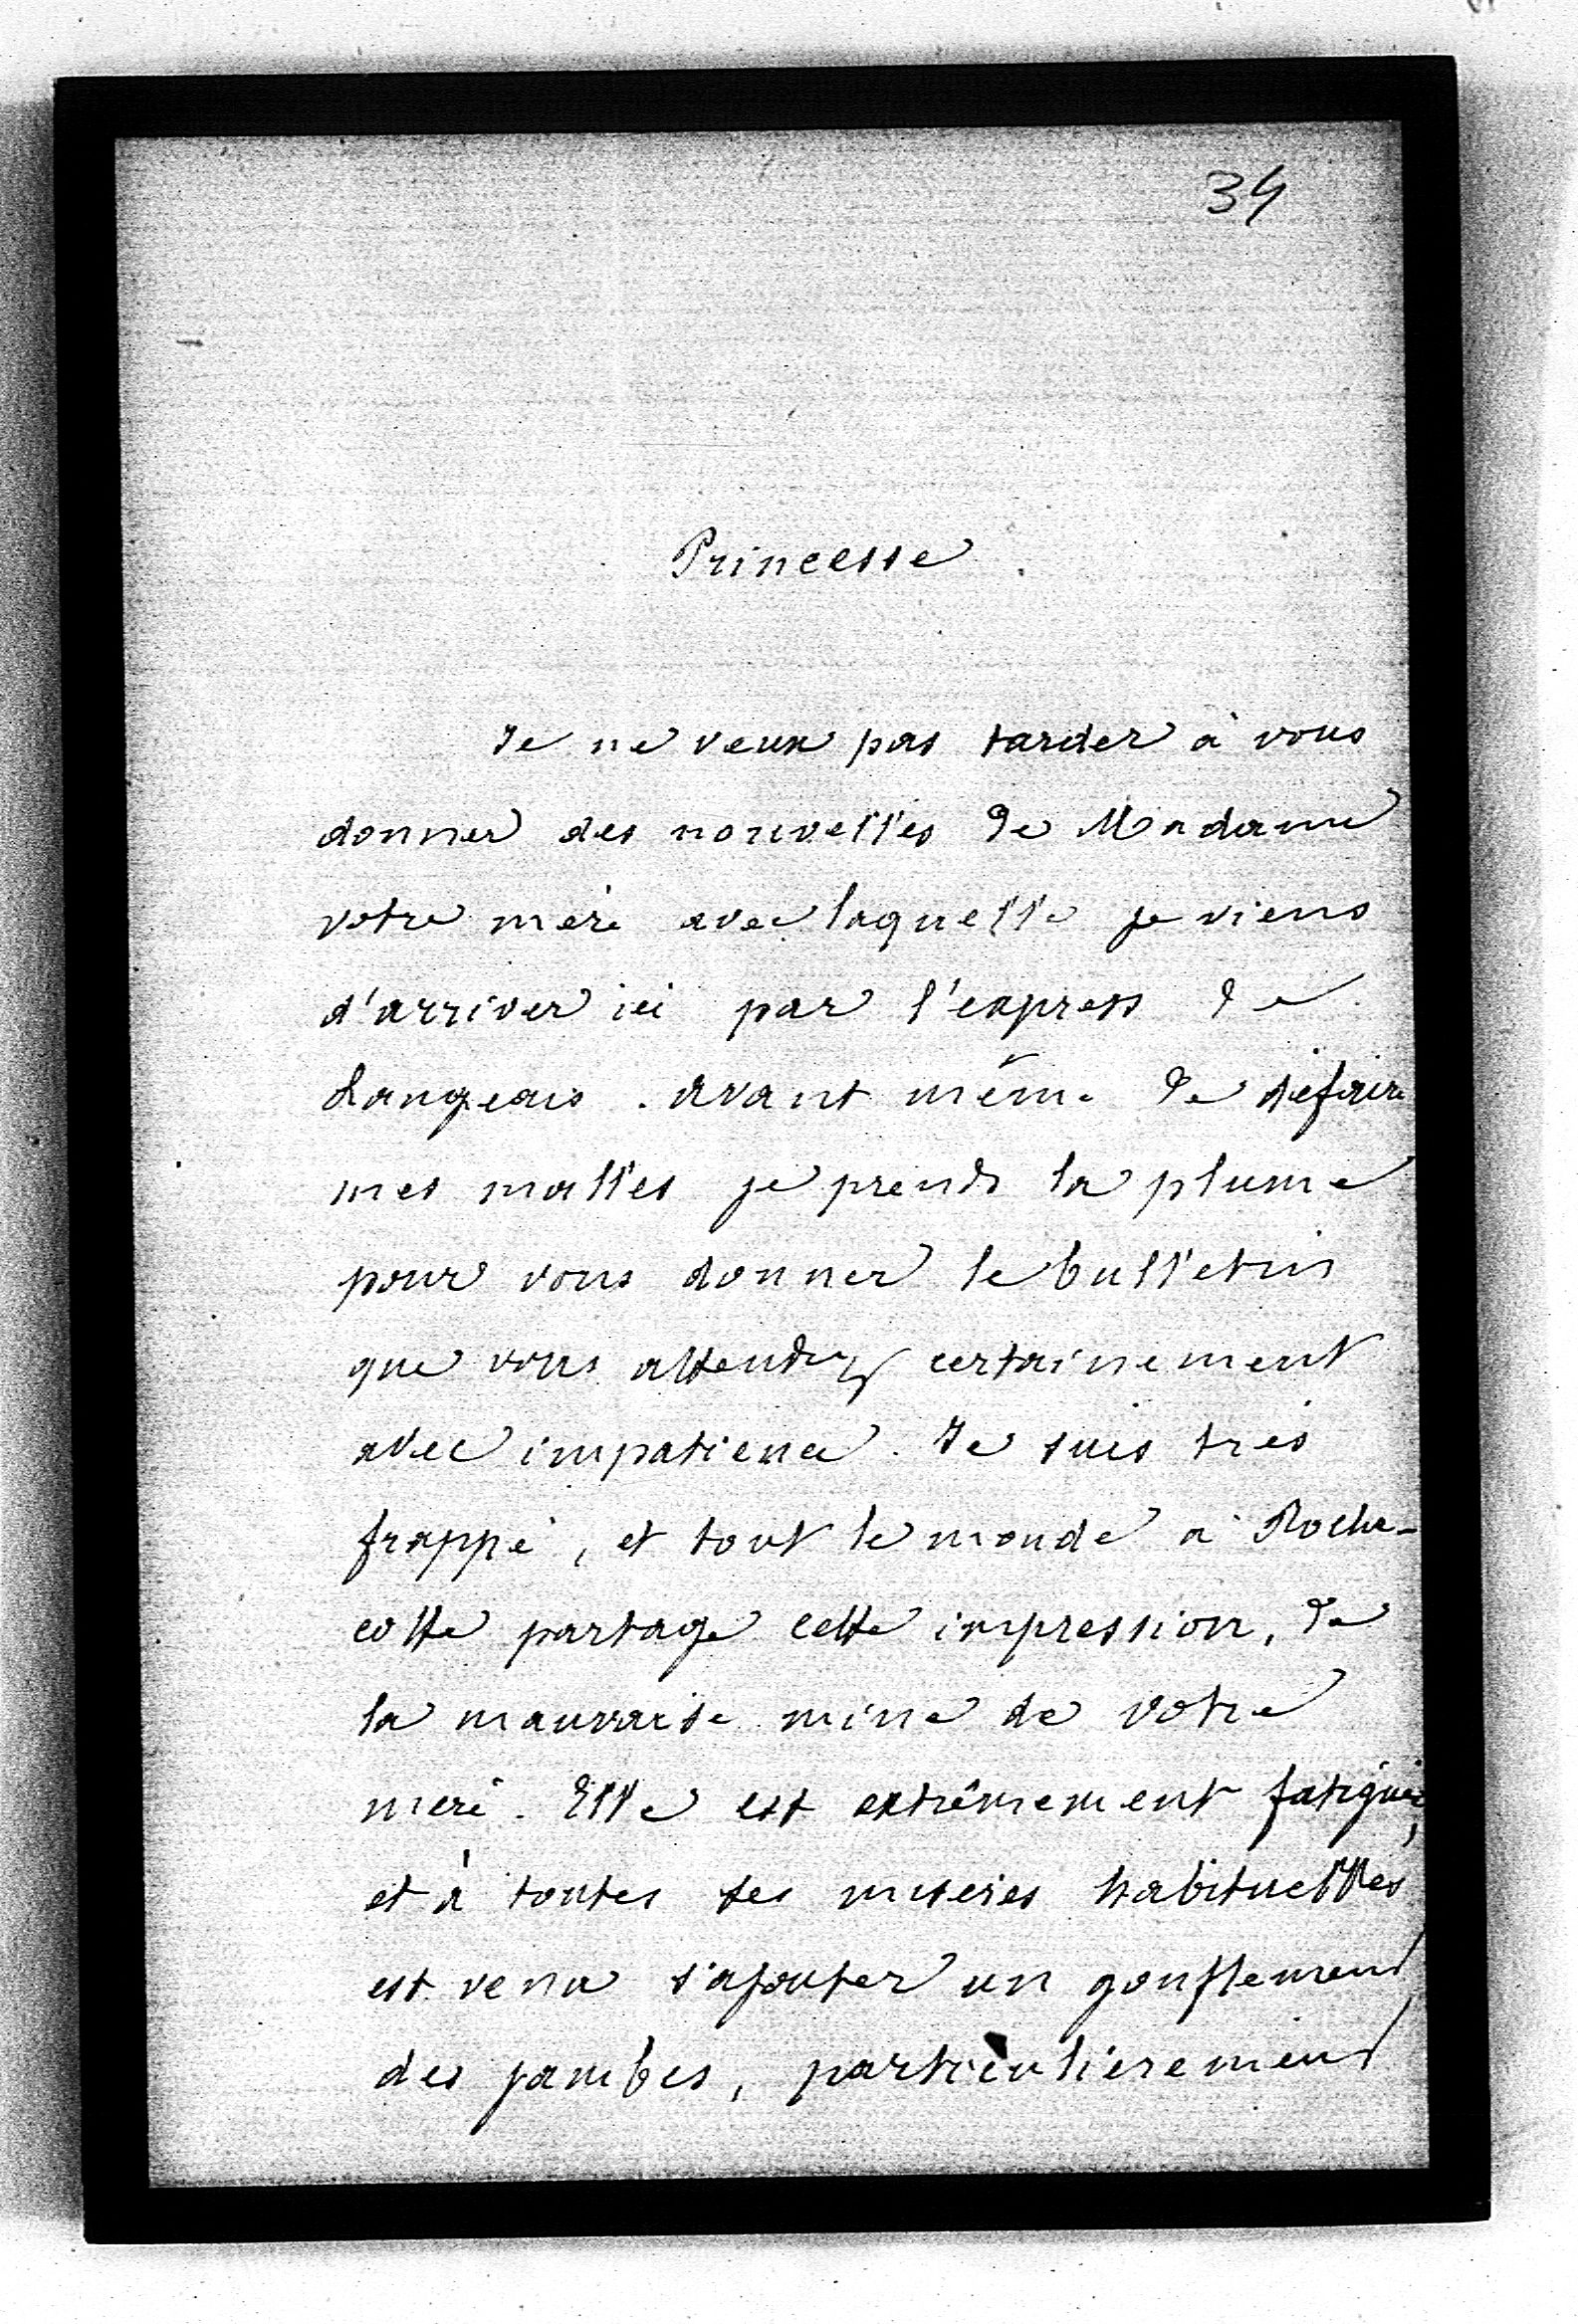 34
Princesse.
Je ne veux pas tarder à vous
donner des nouvelles de Madame
votre mère avec laquelle je viens
d'arriver ici par l'express de
Langeais. Avant même de défaire
mes malles je prends la plume
pour vous donner le bulletin
que vous attendez certainement
avec impatience. Je suis très
frappé, et tout le monde à Roche-
cotte partage cette impression, de
la mauvaise mine de votre
mère. Elle est extrêmement fatiguée,
et à toutes ses misères habituelles
est venu s'ajouter un gonflement
des jambes, particulièrement